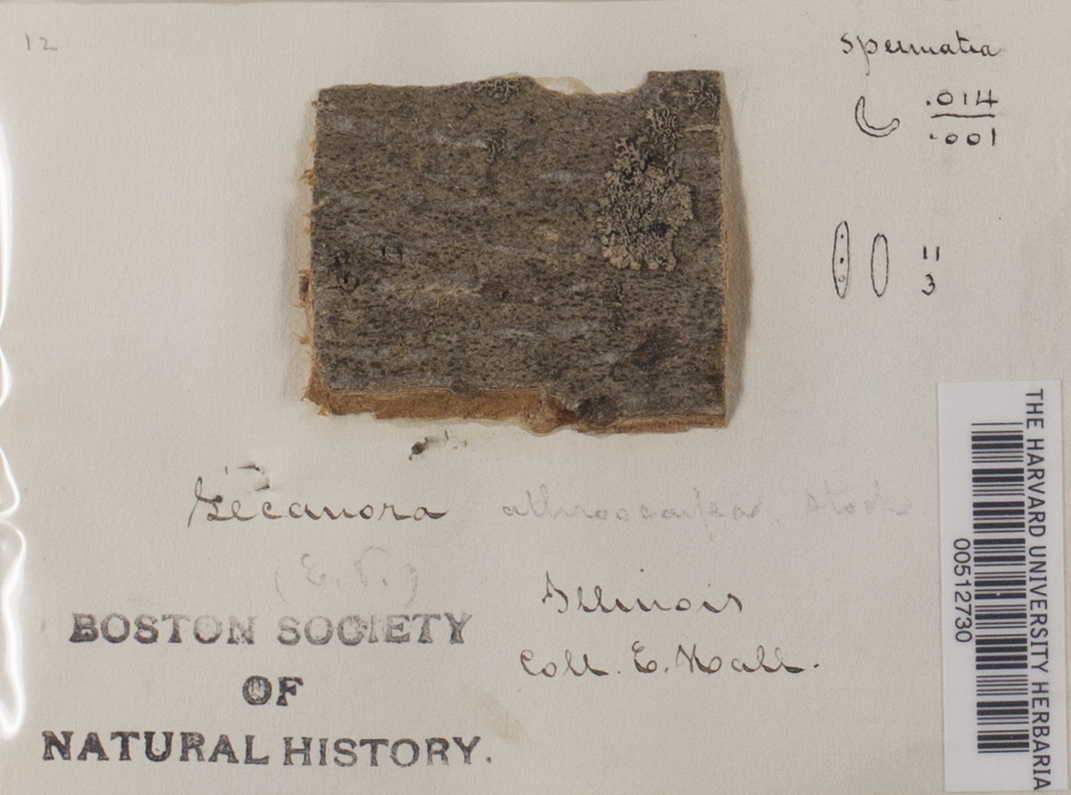 12
Spermatia
.014
.001
11
3
Lecanora athroocarpa,
(E. T.)
Illinois
Coll. E. Hall.
BOSTON SOCIETY
OF
NATURAL HISTORY.
THE HARVARD UNIVERSITY HERBARIA
00512730